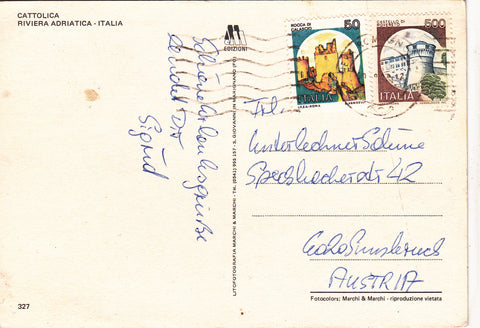 CATTOLICA
RIVIERA ADRIATICA - ITALIA
EDIZIONI
ROCCA DI CALASCIO
50
ITALIA
CASTELLO DI ROVERETO
500
ITALIA
Schöne Urlaubsgrüße
sendet Dir
Sigrid
LITOFOTOGRAFIA MARCHI & MARCHI - TEL. (0541) 955 157 - S. GIOVANNI IN MARIGNANO (FO)
Frl.
Unterlechner
Speckbacherstr 42
6020 Innsbruck
AUSTRIA
Fotocolors: Marchi & Marchi - riproduzione vietata
327